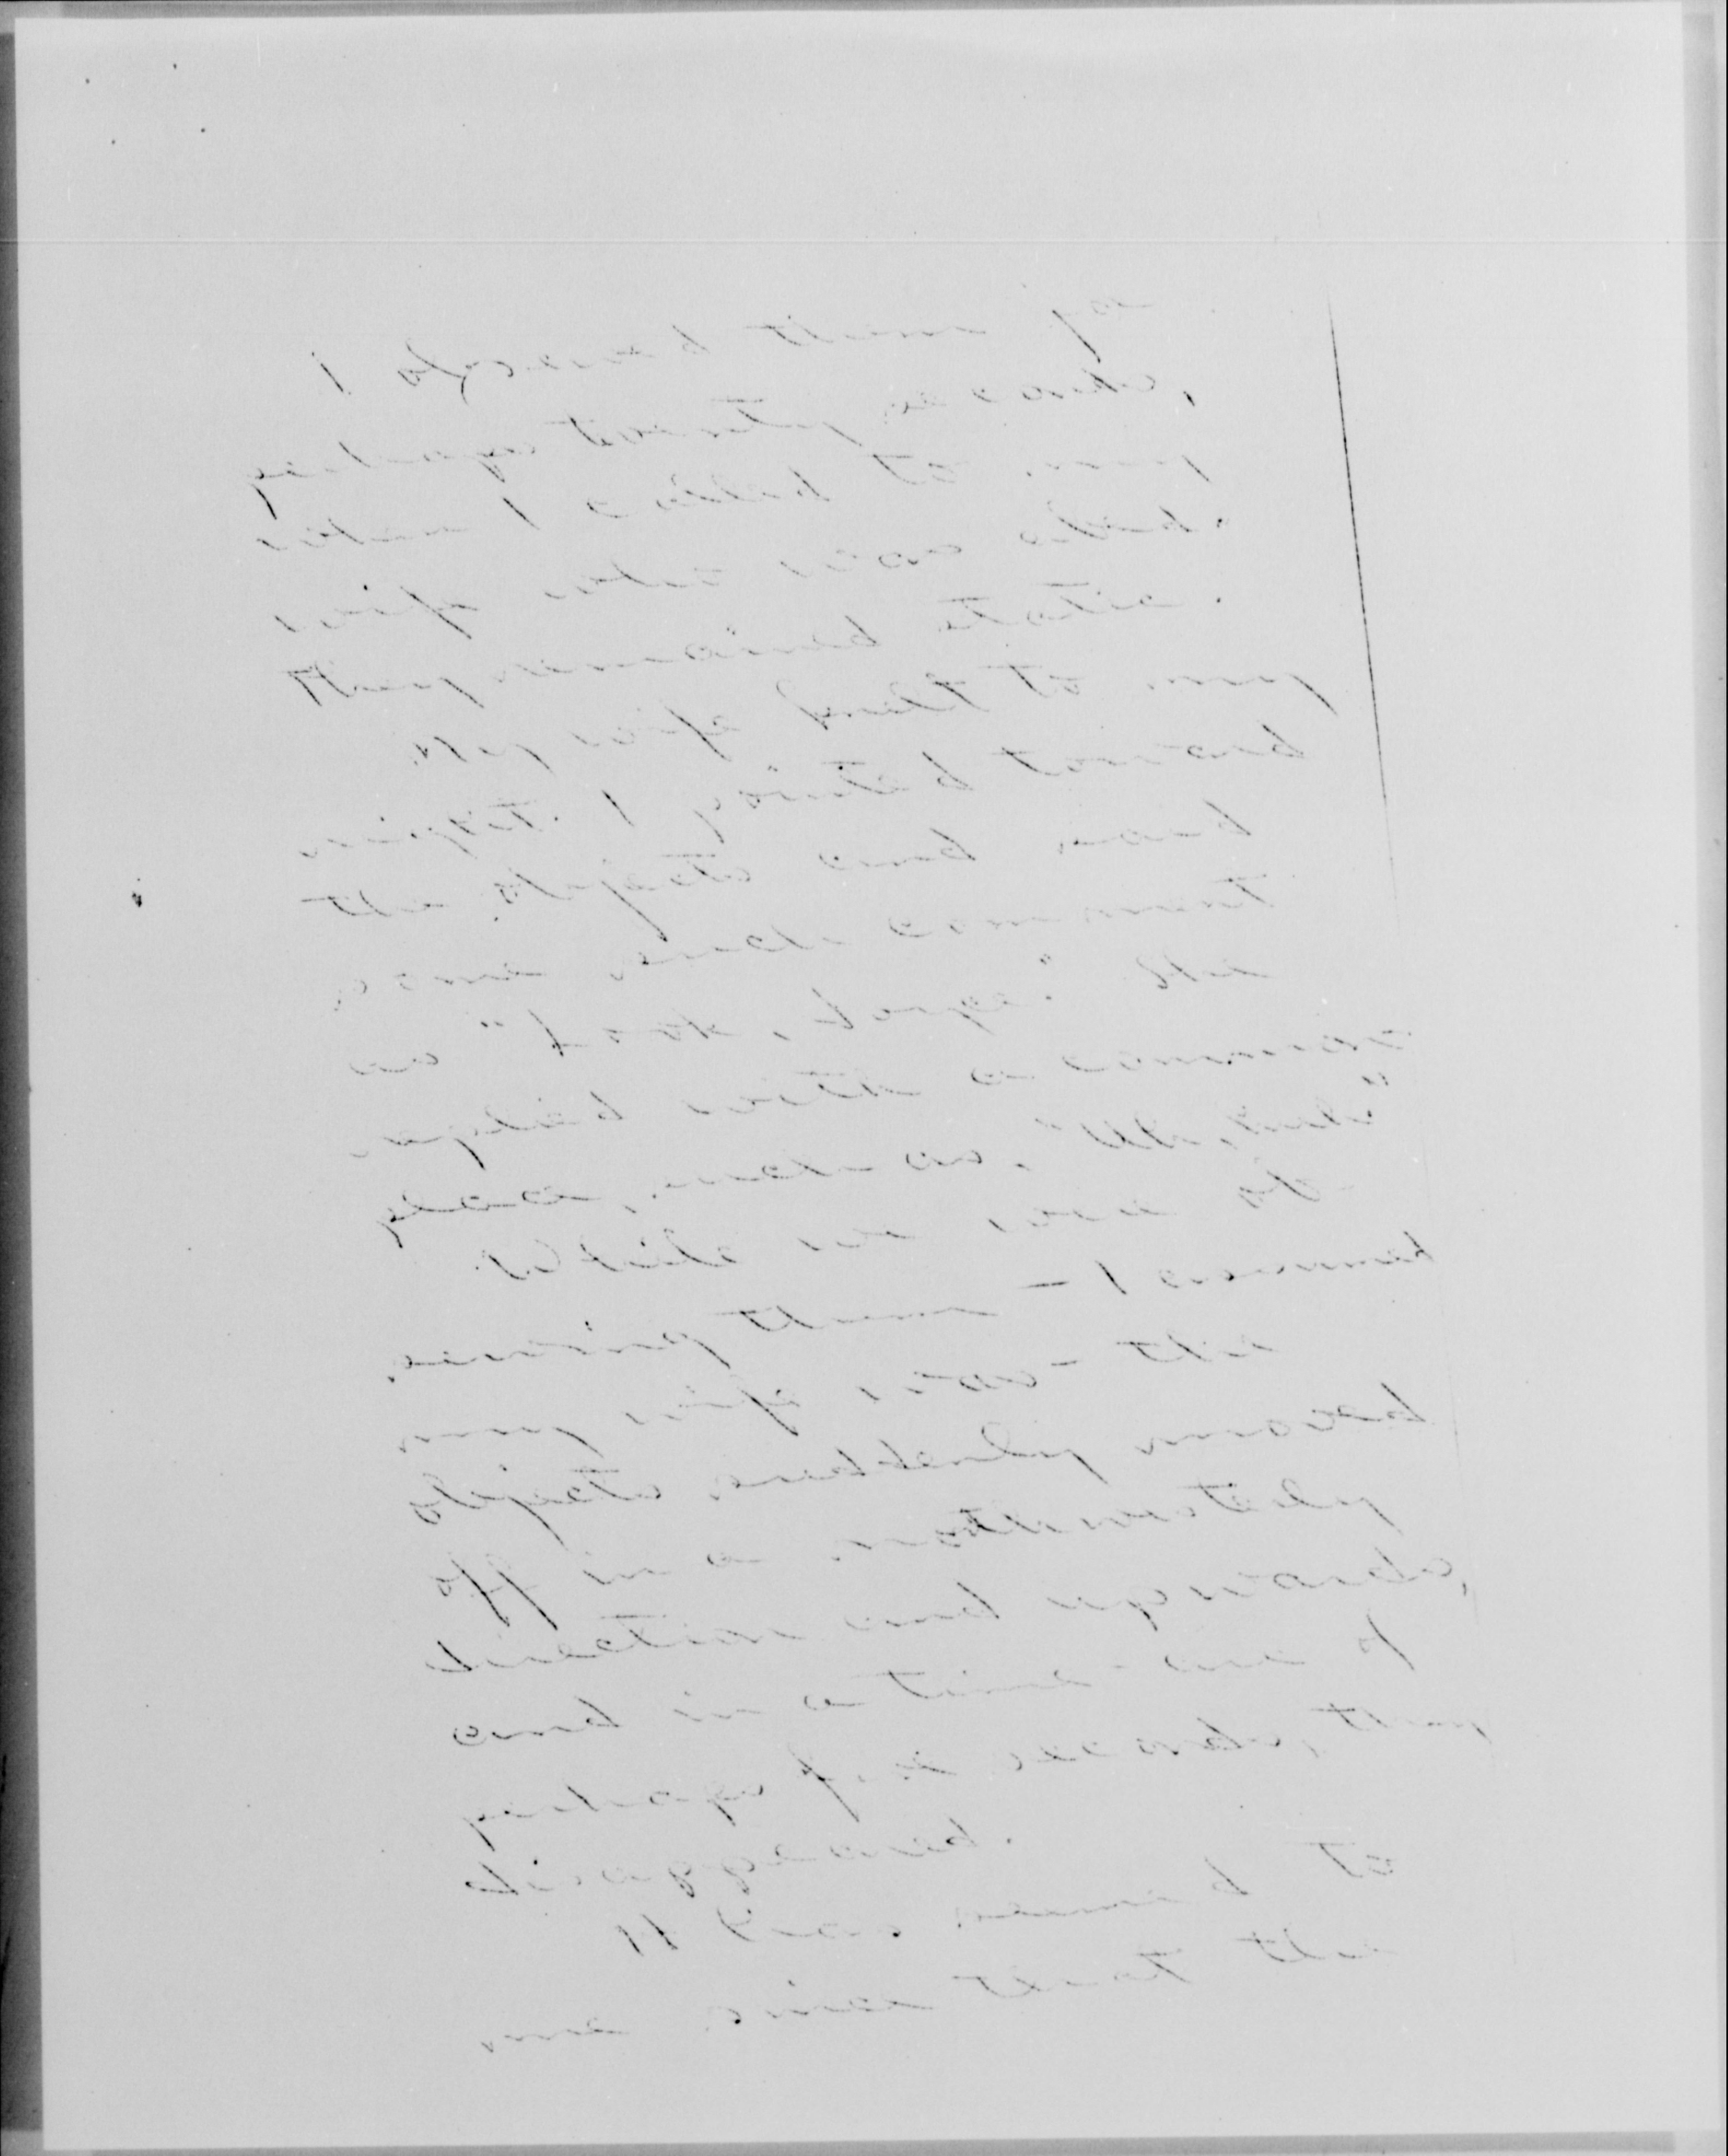 I observed them for
perhaps twenty seconds,
when I called to my
wife
They remained static.
My wife to my
right. I pointed toward
the objects and made
some such comment
as "Look, dear." She
replied with a common-
place, such as,
While we were ob-
serving them - I and
my wife - the
objects suddenly moved
off in a northwesterly
direction and upwards,
and in a time-span of
perhaps five seconds, they
disappeared.
It has seemed to
me since that the